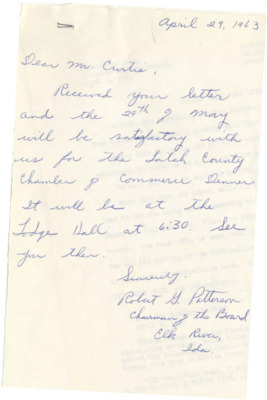 April 29, 1963
Dear Mr. Curtis,
Received your letter
and the 29th of May
will be satisfactory with
us for the Latah County
Chamber of Commerce Dinner
It will be at the
Lodge Hall at 6:30. See
you then.
Sincerely,
Robert G Patterson
Chairman of the Board
Elk River,
Ida.